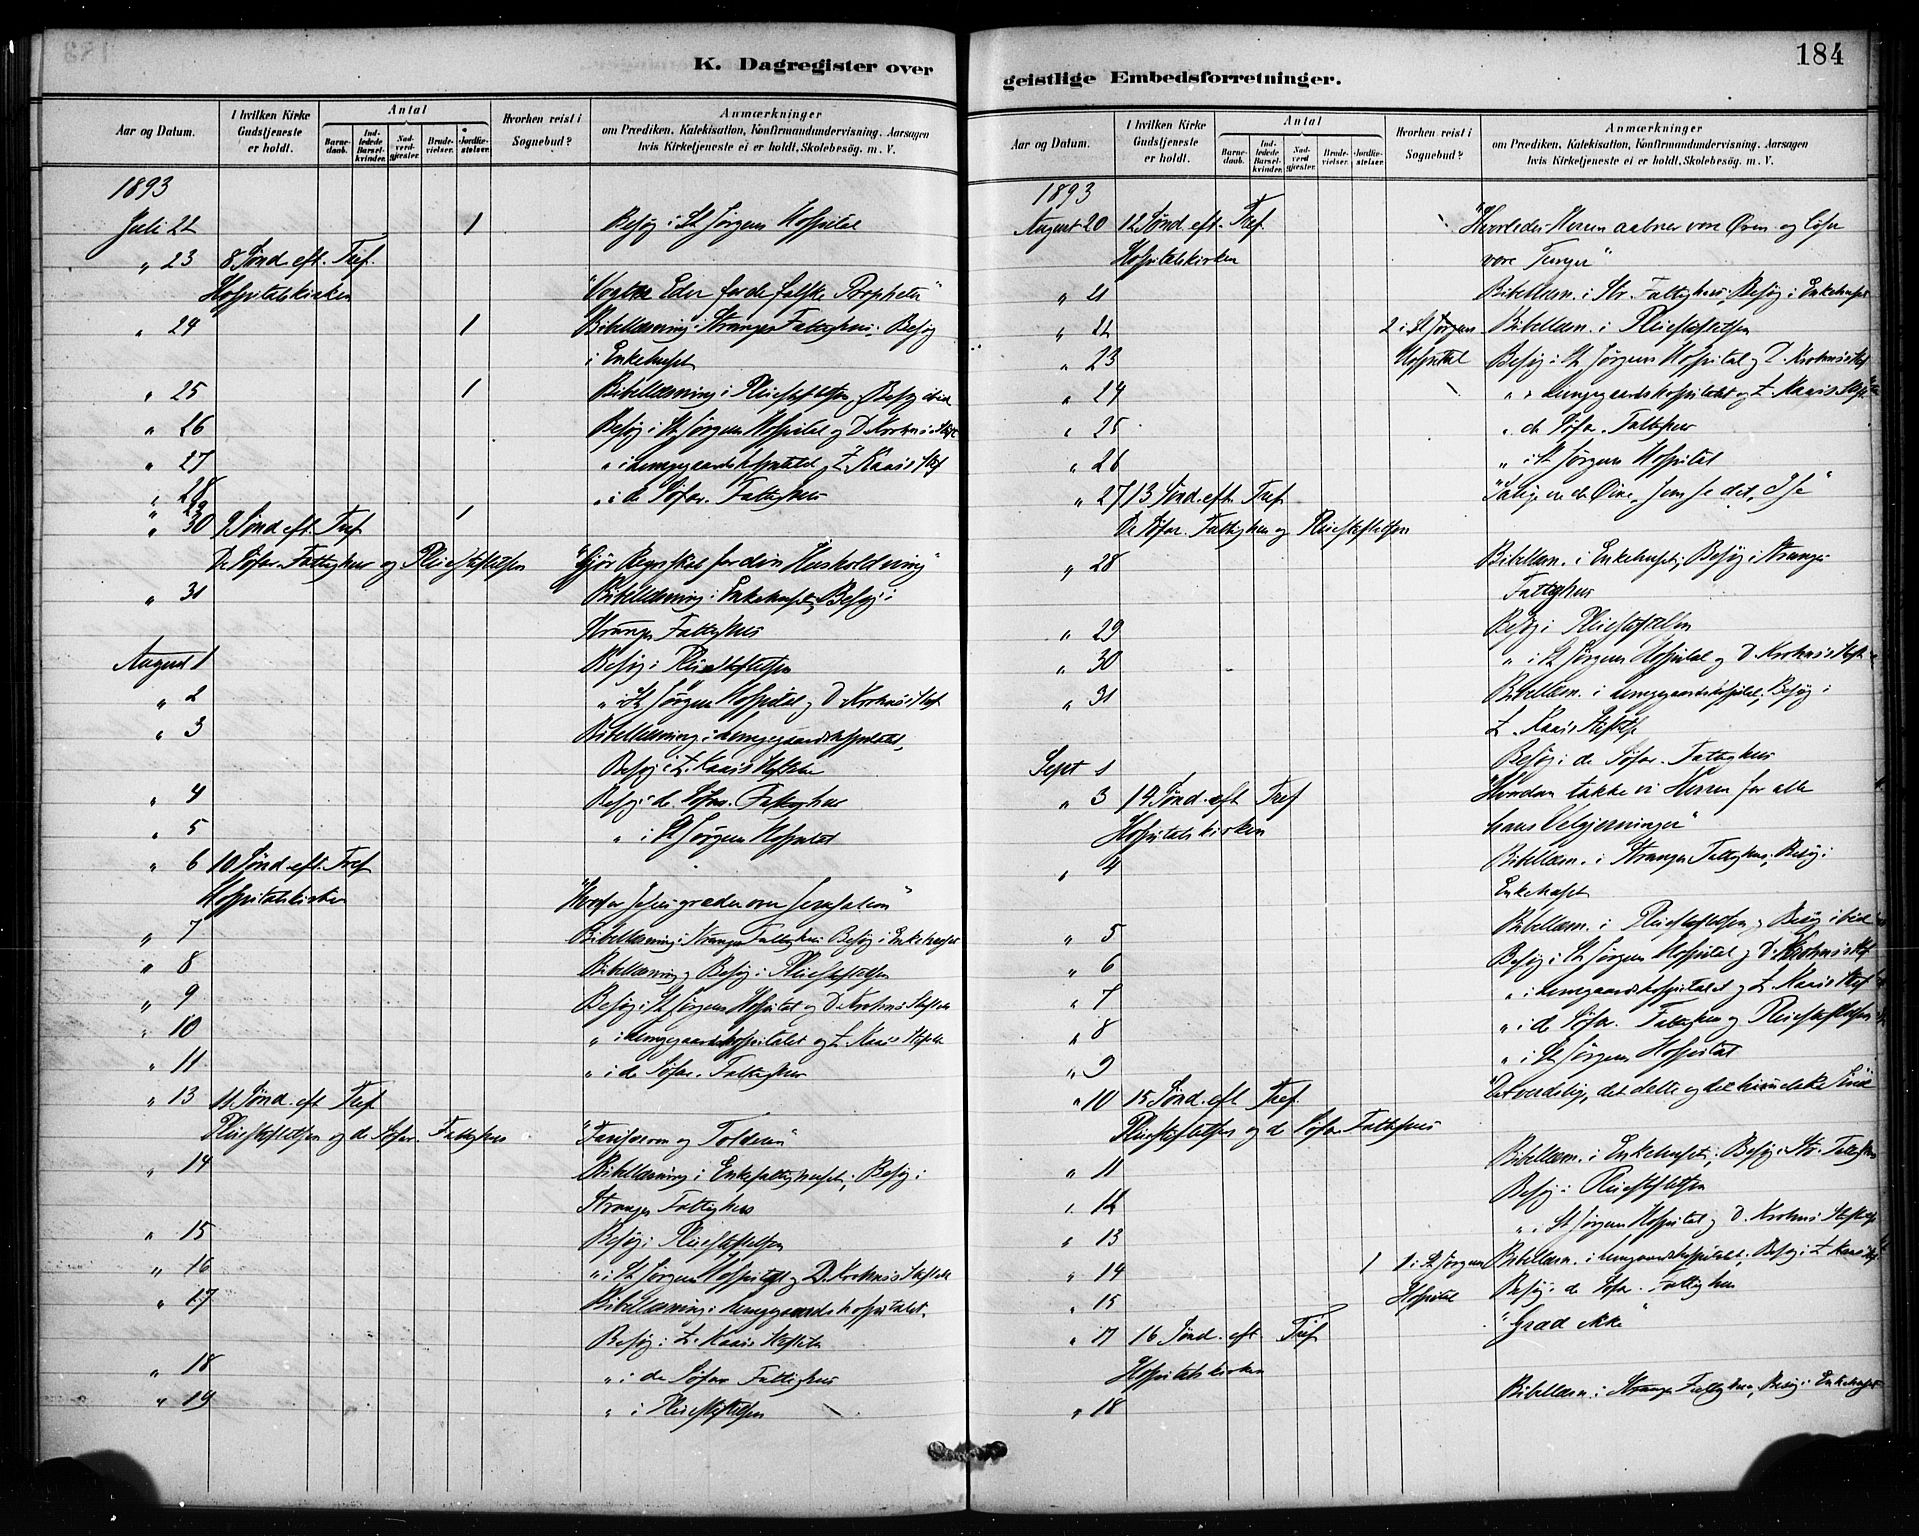 184
K. Dagregister over
geistlige Embedsforretninger.
Aar og Datum.
I hvilken Kirke Gudstjeneste er holdt.
Antal
Barne-daab.
Ind-ledede Barsel-kvinder.
Nad-verd-gjester.
Brude-vielser.
Jordfæ-stelser.
Hvorhen reist i Sognebud?
Anmærkninger
om Prædiken, Katekisation, Konfirmandundervisning, Aarsagen
hvis Kirketjeneste ei er holdt, Skolebesøg. m. V.
1893
Juli 22 1 Besøg i St Jørgens Hospital
" 23 8 Sønd. eft. Tref.
Hospitalskirken "Vogter Eder for de falske Propheter"
" 24 1 Bibellæsning i Stranges Fattighus. Besøg
i Enkehuset
" 25 1 Bibellæsning i Pleiestiftelsen, Besøg ibid
" 26 Besøg i St Jørgens Hospital og D. Krohns Stift
" 27 " i Lungegaardshospitalet og Z. Kaas's Stift
" 28 " i de Søfar. Fattighus
" 29 1
" 30 9 Sønd. eft. Tref
De Søfar. Fattighus og Pleiestiftelsen "Gjør Regnskab for din Husholdning"
" 31 Bibellæsning i Enkehuset, Besøg i
Stranges Fattighus
August 1 Besøg i Pleiestiftelsen
" 2 " i St Jørgens Hospital og D. Krohns Stift
" 3 Bibellæsning i Lungegaardshospitalet,
Besøg i Z. Kaas's Stiftelse
" 4 Besøg i de Søfar. Fattighus
" 5 " i St Jørgens Hospital
" 6 10 Sønd. eft. Tref
Hospitalskirken "Hvorfor Jesus græder over Jerusalem"
" 7 Bibellæsning i Stranges Fattighus Besøg i Enkehuset
" 8 Bibellæsning og Besøg i Pleiestiftelsen
" 9 Besøg i St Jørgens Hospital og D. Krohns Stiftelse
" 10 " i Lungegaardshospitalet og Z. Kaas's Stiftelse
" 11 " i de Søfar. Fattighus
" 13 11 Sønd. eft Tref
Pleiestiftelsen og de Søfar. Fattighus "Farisæeren og Tolderen"
" 14 Bibellæsning i Enkefattighuset, Besøg i
Stranges Fattighus
" 15 Besøg i Pleiestiftelsen
" 16 " i St Jørgens Hospital og D. Krohns Stiftelse
" 17 Bibellæsning i Lungegaardshospitalet,
Besøg i Z. Kaas's Stiftelse
" 18 " i de Søfar Fattighus
" 19 " i Pleiestiftelsen
Aar og Datum.
I hvilken Kirke Gudstjeneste er holdt.
Antal
Barne-daab.
Ind-ledede Barsel-kvinder.
Nad-verd-gjester.
Brude-vielser.
Jordfæ-stelser.
Hvorhen reist i Sognebud?
Anmærkninger
om Prædiken, Katekisation, Konfirmandundervisning, Aarsagen
hvis Kirketjeneste ei er holdt, Skolebesøg. m. V.
1893
August 20 12 Sønd. eft. Tref. "Hvorledes Herren aabner vore Øren og løser
Hospitalskirken vore Tunger"
" 21 Bibellæsn. i Str. Fattighus, Besøg i Enkehuset
" 22 2 i St Jørgens Bibellæsn. i Pleiestiftelsen
" 23 Hospital Besøg i St Jørgens Hospital og D. Krohns Stift
" 24 " i Lungegaardshospitalet og Z. Kaas's Stift
" 25 " de Søfar. Fattighus
" 26 " i St Jørgens Hospital
" 27 13 Sønd. eft Tref "Salig er de Øine, som se det, I se"
De Søfar. Fattighus og Pleiestiftelsen
" 28 Bibellæsn. i Enkehuset; Besøg i Stranges
Fattighus
" 29 Besøg i Pleiestiftelsen
" 30 " i St Jørgens Hospital og D. Krohns Stift
" 31 Bibellæsn. i Lungegaardshospital, Besøg i
Z. Kaas's Stiftelse
Sept 1 Besøg i de Søfar. Fattighus
" 3 14 Sønd. eft Tref "Hvordan takke vi Herren for alle
Hospitalskirken hans Velgjerninger"
" 4 Bibellæsn. i Stranges Fattighus, Besøg i
Enkehuset
" 5 Bibellæsn. i Pleiestiftelsen, Besøg ibid
" 6 Besøg i St Jørgens Hospital og D. Krohns Stift
" 7 " i Lungegaardshospitalet og Z. Kaas's Stift
" 8 " i de Søfar. Fattighus og Pleiestiftelsen
" 9 " i St Jørgens Hospital
" 10 15 Sønd. eft Tref "Det verdslige, det delte og det himmelske Sind"
Pleiestiftelsen og de Søfar Fattighus
" 11 Bibellæsn. i Enkehuset; Besøg i Str. Fattighus
" 12 Besøg i Pleiestiftelsen
" 13 " i St Jørgens Hospital og D. Krohns Stiftelse
" 14 1 1 i St Jørgens Bibellæsn. i Lungegaardshospitalet, Besøg i Z. Kaas's Stift
" 15 Hospital Besøg i de Søfar. Fattighus
" 17 16 Sønd. eft. Tref "Græd ikke"
Hospitalskirken
" 18 Bibellæsn. i Stranges Fattighus, Besøg i Enkehuset